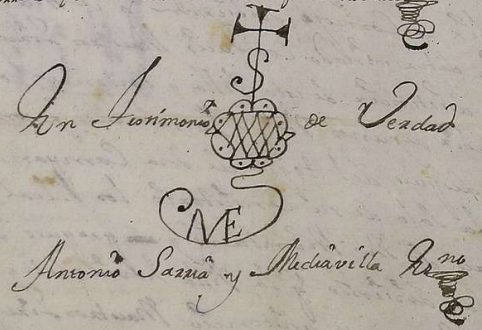 En Testimonio de Verdad
S
NE
Antonio Sarria y Mediavilla